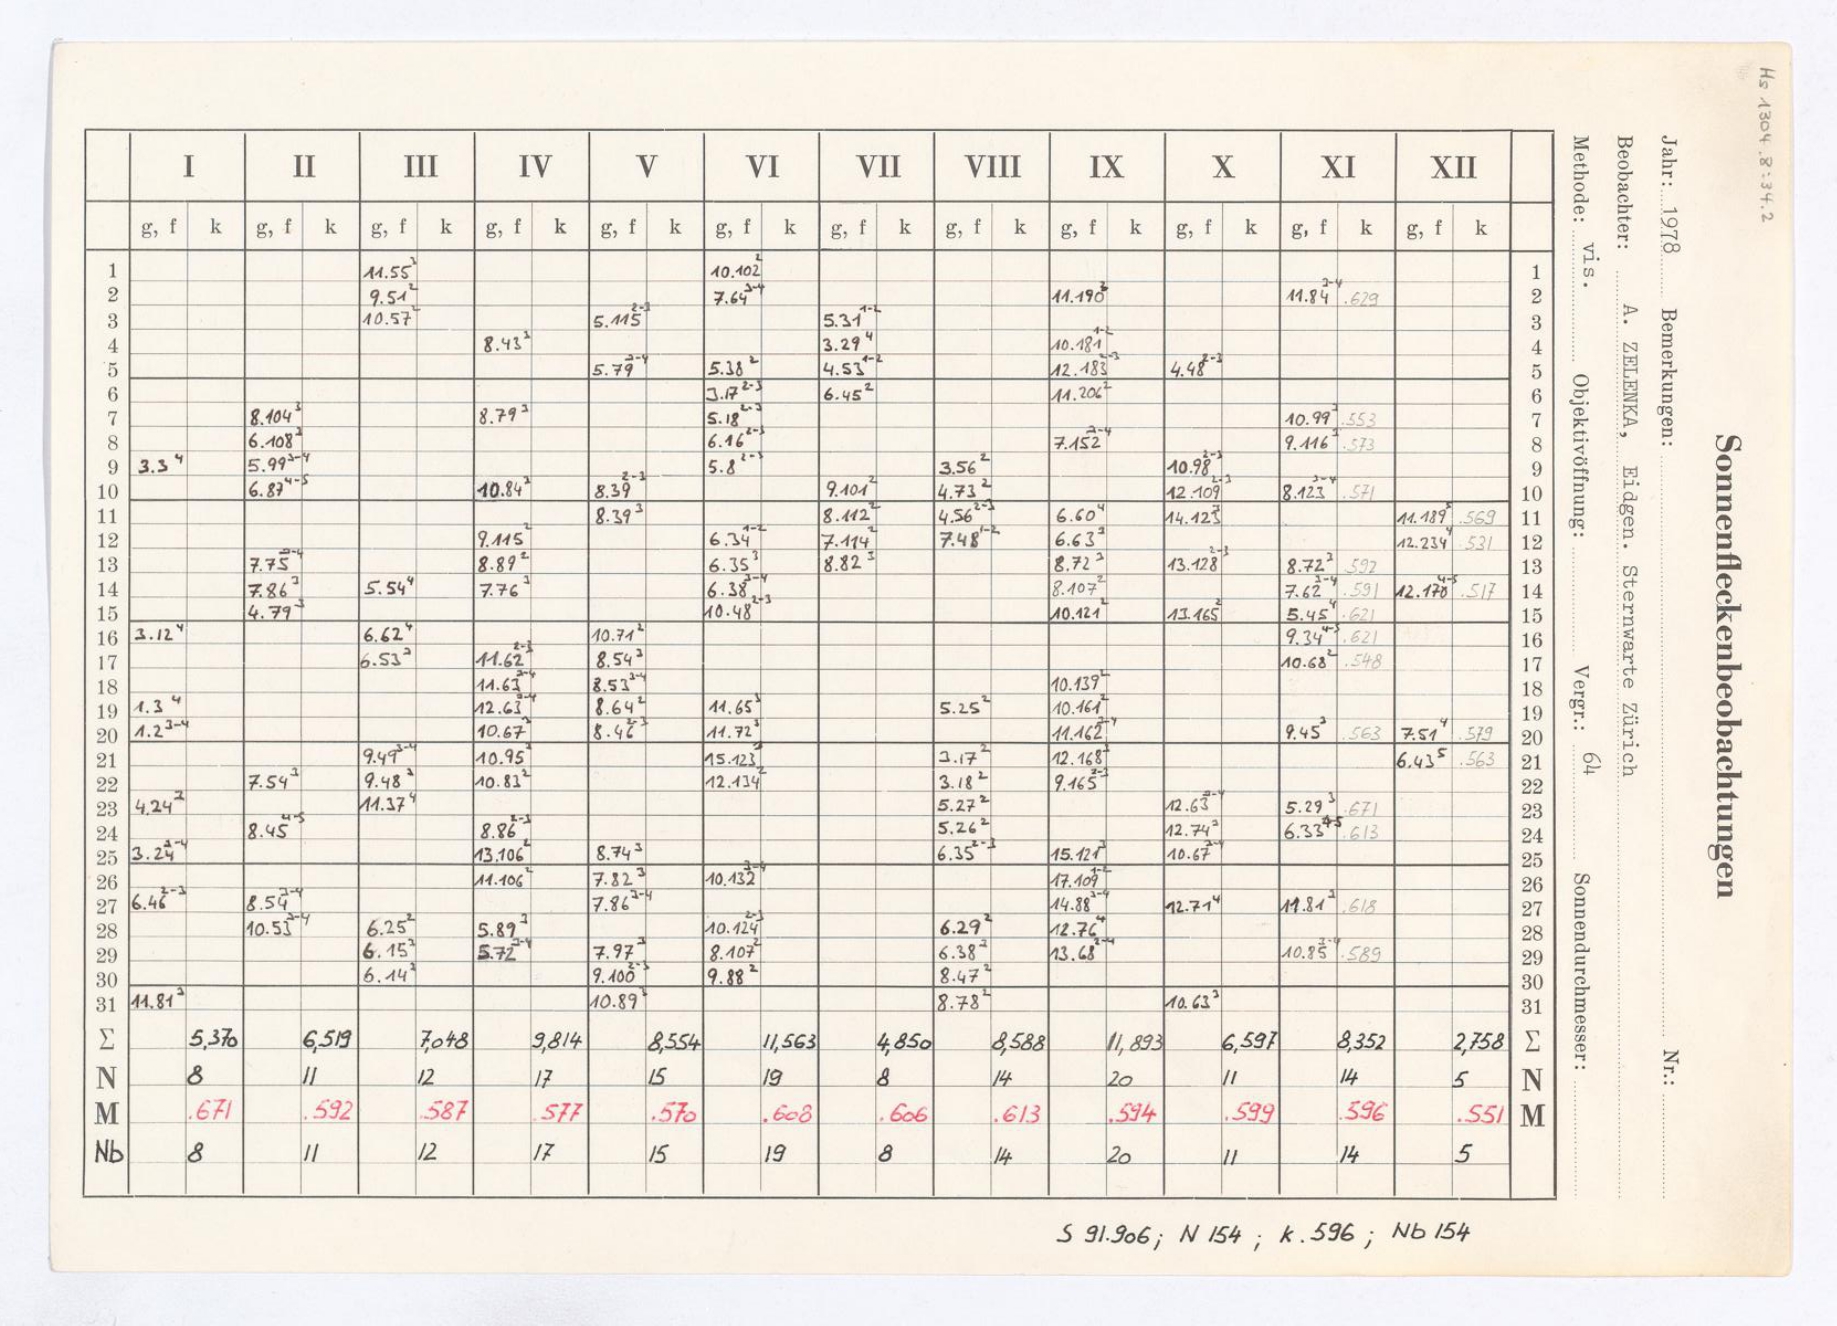 Hs 1304.8:34.2
Sonnenfleckenbeobachtungen
Jahr: 1978 Bemerkungen: Nr.:
Beobachter: A. ZELENKA, Eidgen. Sternwarte Zürich
Methode: vis. Objektivöffnung: Vergr.: 64 Sonnendurchmesser:
I II III IV V VI VII VIII IX X XI XII
g, f k g, f k g, f k g, f k g, f k g, f k g, f k g, f k g, f k g, f k g, f k g, f k
1 11.55³ 10.102² 1
2 9.51² 7.64³⁻⁴ 11.190³ 11.84³⁻⁴ .629 2
3 10.57² 5.115²⁻³ 5.31¹⁻² 3
4 8.43³ 3.29⁴ 10.181¹⁻² 4
5 5.79³⁻⁴ 5.38² 4.53¹⁻² 12.183²⁻³ 4.48²⁻³ 5
6 3.17²⁻³ 6.45² 11.206² 6
7 8.104³ 8.79³ 5.18²⁻³ 10.99³ .553 7
8 6.108³ 6.16²⁻³ 7.152³⁻⁴ 9.116³ .573 8
9 3.3⁴ 5.99³⁻⁴ 5.8²⁻³ 3.56² 10.98²⁻³ 9
10 6.87⁴⁻⁵ 10.84³ 8.39²⁻³ 9.101² 4.73² 12.109²⁻³ 8.123³⁻⁴ .571 10
11 8.39³ 8.112² 4.56²⁻³ 6.60⁴ 14.123³ 11.189⁵ .569 11
12 9.115² 6.34¹⁻² 7.114² 7.48¹⁻² 6.63³ 12.234⁴ .531 12
13 7.75³⁻⁴ 8.89² 6.35³ 8.82³ 8.72³ 13.128²⁻³ 8.72³ .592 13
14 7.86³ 5.54⁴ 7.76³ 6.38³⁻⁴ 8.107² 7.62³⁻⁴ .591 12.178⁴⁻⁵ .517 14
15 4.79³ 10.48²⁻³ 10.121² 13.165² 5.45⁴ .621 15
16 3.12⁴ 6.62⁴ 10.71² 9.34⁴⁻⁵ .621 16
17 6.53³ 11.62²⁻³ 8.54³ 10.68² .548 17
18 11.63³⁻⁴ 8.53³⁻⁴ 10.139² 18
19 1.3⁴ 12.63³⁻⁴ 8.64² 11.65³ 5.25² 10.161² 19
20 1.2³⁻⁴ 10.67³ 8.46²⁻³ 11.72³ 11.162³⁻⁴ 9.45³ .563 7.51⁴ .579 20
21 9.49³⁻⁴ 10.95³ 15.123³ 3.17² 12.168³ 6.43⁵ .563 21
22 7.54³ 9.48³ 10.83² 12.134² 3.18² 9.165²⁻³ 22
23 4.24² 11.37⁴ 5.27² 12.63³⁻⁴ 5.29³ .671 23
24 8.45⁴⁻⁵ 8.86²⁻³ 5.26² 12.74³ 6.33⁴⁻⁵ .613 24
25 3.24³⁻⁴ 13.106² 8.74³ 6.35²⁻³ 15.121³ 10.67³⁻⁴ 25
26 11.106² 7.82³ 10.132³⁻⁴ 17.109¹⁻² 26
27 6.46²⁻³ 8.54³⁻⁴ 7.86³⁻⁴ 14.88³⁻⁴ 12.71⁴ 11.81³ .618 27
28 10.53³⁻⁴ 6.25² 5.89³ 10.124²⁻³ 6.29² 12.76⁴ 28
29 6.15³ 5.72³⁻⁴ 7.97³ 8.107² 6.38² 13.68³⁻⁴ 10.85³⁻⁴ .589 29
30 6.14² 9.100²⁻³ 9.88² 8.47² 30
31 11.81³ 10.89³ 8.78² 10.63³ 31
Σ 5,370 6,519 7,048 9,814 8,554 11,563 4,850 8,588 11,893 6,597 8,352 2,758 Σ
N 8 11 12 17 15 19 8 14 20 11 14 5 N
M .671 .592 .587 .577 .570 .608 .606 .613 .594 .599 .596 .551 M
Nb 8 11 12 17 15 19 8 14 20 11 14 5
S 91.906; N 154; k .596; Nb 154